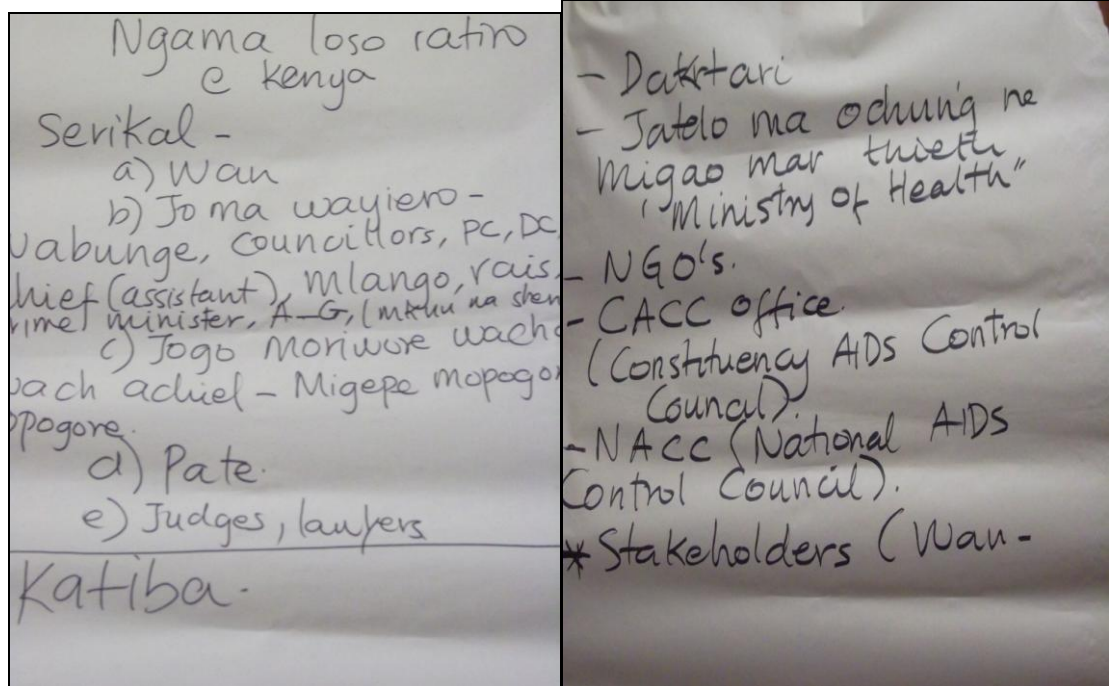 Ngama loso ratiro
e kenya
Serikal -
a) Wan
b) Jo ma wayiero -
wabunge, Councillors, PC, DC,
hief (assistant), Mlango, rais,
rime minister, A-G, (mkuu na sher
c) Jogo moriwore wacho
wach achiel - Migepe mopogor
opogore.
d) Pate.
e) Judges, lawyers
Katiba.
- Daktari
- Jatelo ma ochung' ne
Migao mar thieth
"Ministry of Health"
- NGO's.
- CACC office.
(Constituency AIDs Control
Council).
- NACC (National AIDS
Control Council).
* Stakeholders (Wan -